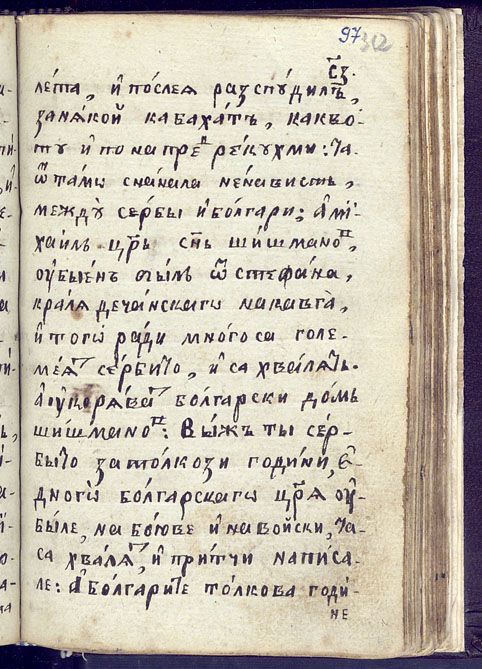 97 312
с҃з.
лѣта, и҆ по́слея разспꙋ́дилъ,
занѧ́кой кабаха́тъ, какво́
тꙋ и҆ по напреⷣ реко́хми: та
ѿ та́мо снача́ла не́нависть,
междꙋ̀ се́рбы и҆ бо́лгари; а҆ ми́
хаилъ цр҃ь сн҃ъ ши́шманоⷡ,
оу҆бїе́нъ бы́лъ ѿ стефа́на,
кра́ля дечанскагѡ на кавга̀,
и҆ тогѡ̀ ра́ди мно́го са голе-
ме́ятъ се́рбїѡ, и҆ са хва́лятъ.
а҆ оу҆коря́ватъ болгарски до́мъ
ши́шманоⷡ: Ви́жъ ты се́р-
бїю за то́лкози годи́ни, є҆
дного̀ бо́лгарскаго цр҃я оу҆-
би́ле, на бо́юве и҆ на войски, та
са хва́лятъ, и҆ при́тчи написа-
ле: а҆ бо́лгарите то́лкова годи-
не